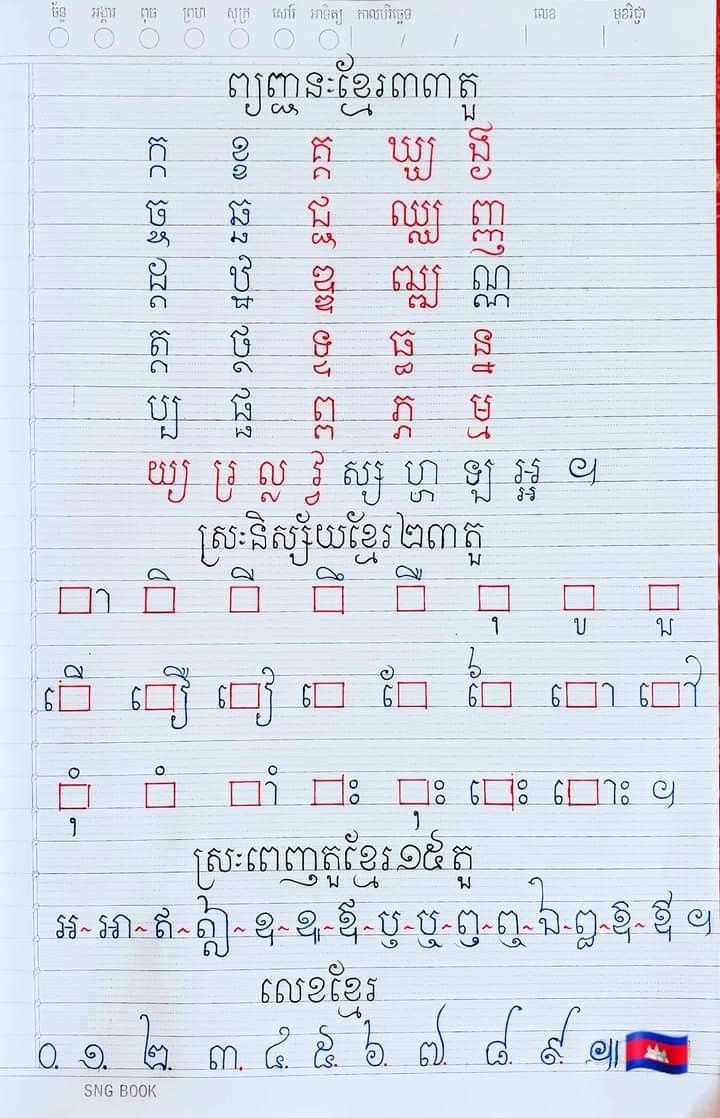 ច័ន្ទ អង្គារ ពុធ ព្រហ សុក្រ សៅរ៍ អាទិត្យ កាលបរិច្ឆេទ / / លេខ មុខវិជ្ជា
ព្យញ្ជនៈខ្មែរ៣៣តួ
ក្ក ខ្ខ គ្គ ឃ្ឃ ង្ង
ច្ច ឆ្ឆ ជ្ជ ឈ្ឈ ញ្ញ
ដ្ដ ឋ្ឋ ឌ្ឌ ឍ្ឍ ណ្ណ
ត្ត ថ្ថ ទ្ទ ធ្ធ ន្ន
ប្ប ផ្ផ ព្ព ភ្ភ ម្ម
យ្យ រ្រ ល្ល វ្វ ស្ស ហ្ហ ឡ អ្អ ។
ស្រៈនិស្ស័យខ្មែរ២៣តួ
□ា □ិ □ី □ឹ □ឺ □ុ □ូ □ួ
□ើ □ឿ □ៀ □េ □ែ □ៃ □ោ □ៅ
□ុំ □ំ □ាំ □ះ □ុះ □េះ □ោះ ។
ស្រៈពេញតួខ្មែរ១៥តួ
អ~អា~ឥ~ឦ~ឧ~ឩ~ឪ~ឫ~ឬ~ឭ~ឮ~ឯ~ឰ~ឱ~ឳ ។
លេខខ្មែរ
០. ១. ២. ៣. ៤. ៥. ៦. ៧. ៨. ៩. ៚
SNG BOOK